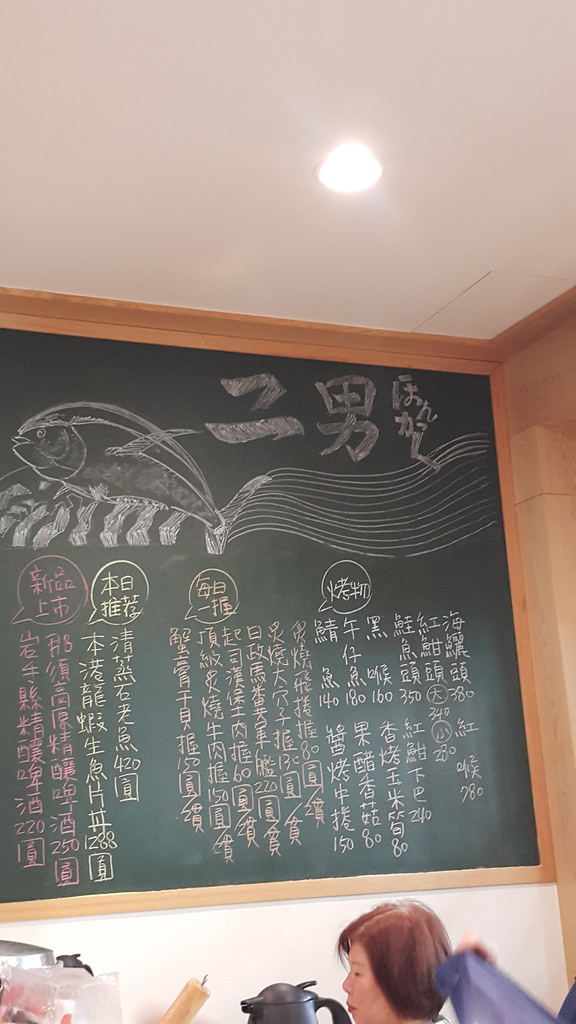 二男
ほんかく
烤物
海鱺頭380
紅魽頭(大)340(小)280
鮭魚頭350
黑喉160
午仔魚180
鯖魚140
紅喉780
紅魽下巴240
香烤玉米筍80
果醋香菇80
醬烤中捲150
每日一握
炙燒飛捲握80圓/貫
炙燒大穴子握130圓/貫
日政馬糞軍艦220圓/貫
起司漢堡肉握60圓/貫
頂級炙燒牛肉握150圓/貫
蟹膏干貝握150圓/貫
本日推荐
清蒸石老魚420圓
本港龍蝦生魚片丼1288圓
新品上市
那須高原精釀啤酒250圓
岩手縣精釀啤酒220圓